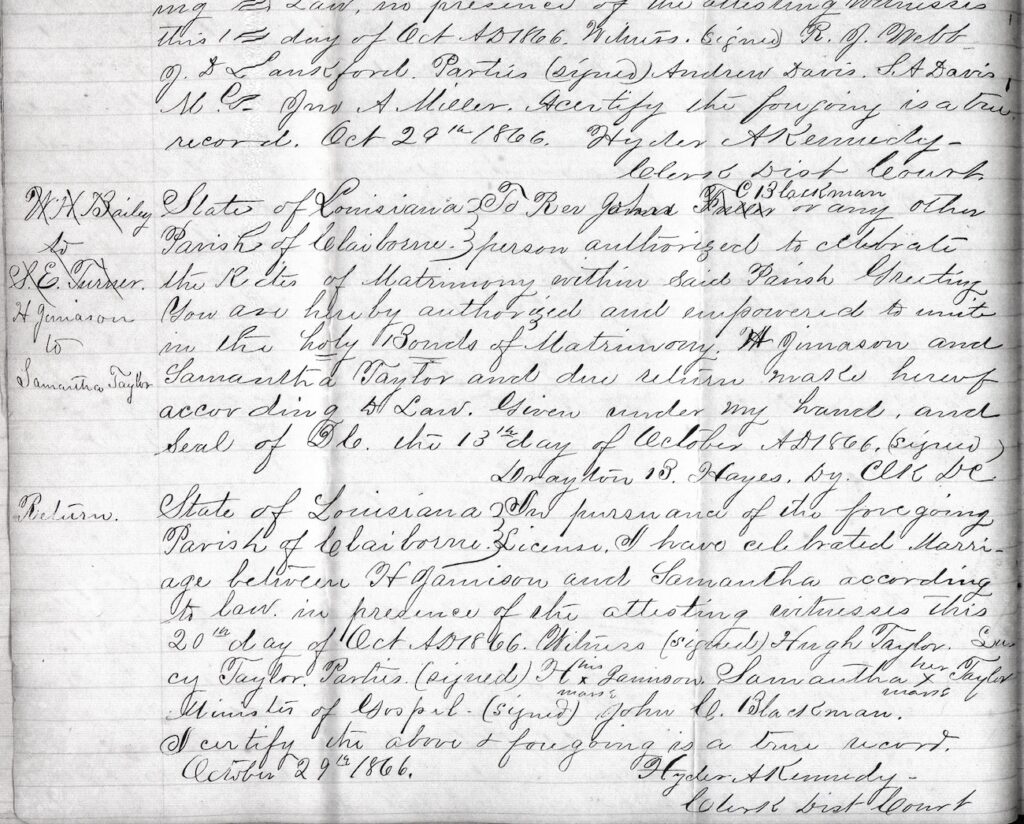 ing to Law, in presence of the attesting witnesses
this 1st day of Oct AD1866. Witness. signed R. J. Webb
J. D Lankford. Parties (signed) Andrew Davis. S. A Davis
M. G. Jno A Miller. I certify the forgoing is a true
record. Oct 29th 1866. Hyder A Kennedy
Clerk Dist Court
W H Bailey
to
S. E. Turner.
H Jimason
to
Samantha Taylor
State of Louisiana } To Rev John C Blackman or any other
Parish of Claiborne. } person authorized to celebrate
the Rites of Matrimony within said Parish Greeting
You are hereby authorized and empowered to unite
in the holy Bonds of Matrimony. H Jimason and
Samantha Taylor and due return make hereof
according to Law. Given under my hand, and
Seal of the 13th day of October AD1866. (signed)
Drayton B. Hayes. Dy. Clk DC
Return.
State of Louisiana } In pursuance of the foregoing
Parish of Claiborne. } License. I have celebrated Marri-
age between H Jamison and Samantha according
to law in presence of the attesting witnesses this
20th day of Oct AD1866. Witness (signed) Hugh Taylor. Lun
cy Taylor. Parties. (signed) H his x mark Jamison. Samantha her x mark Taylor
Minister of Gospel. (signed) John C. Blackman.
I certify the above & foregoing is a true record.
October 29th 1866. Hyder A Kennedy
Clerk Dist Court